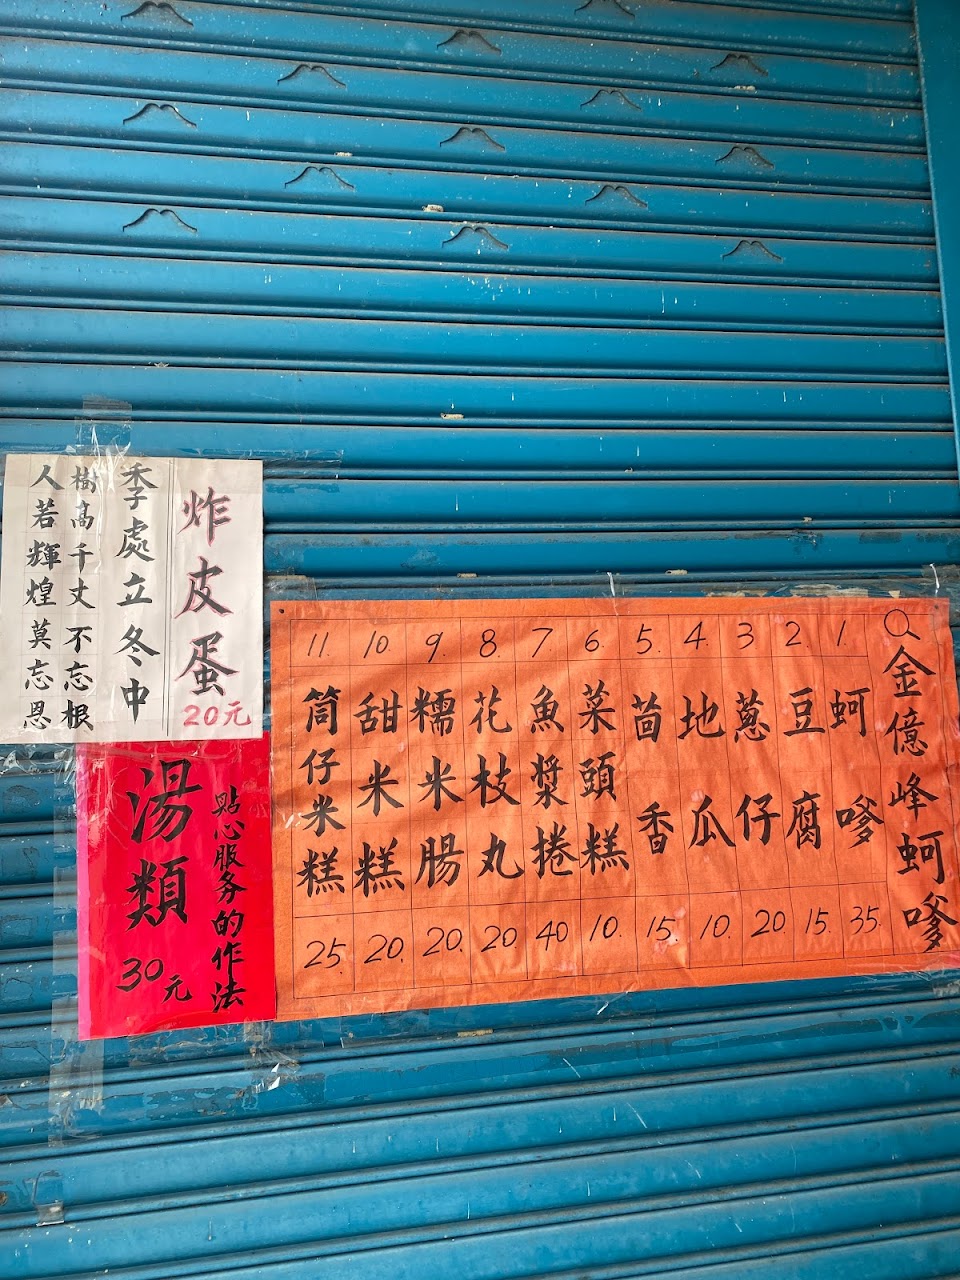 金億峰蚵嗲
1. 蚵嗲 35.
2. 豆腐 15.
3 蔥仔 20
4. 地瓜 10.
5. 茴香 15.
6. 菜頭糕 10.
7. 魚漿捲 40
8. 花枝丸 20.
9. 糯米腸 20.
10. 甜米糕 20.
11. 筒仔米糕 25.
炸皮蛋
20元
季處立冬中
樹高千丈不忘根
人若輝煌莫忘恩
貼心服务的作法
湯類
30元